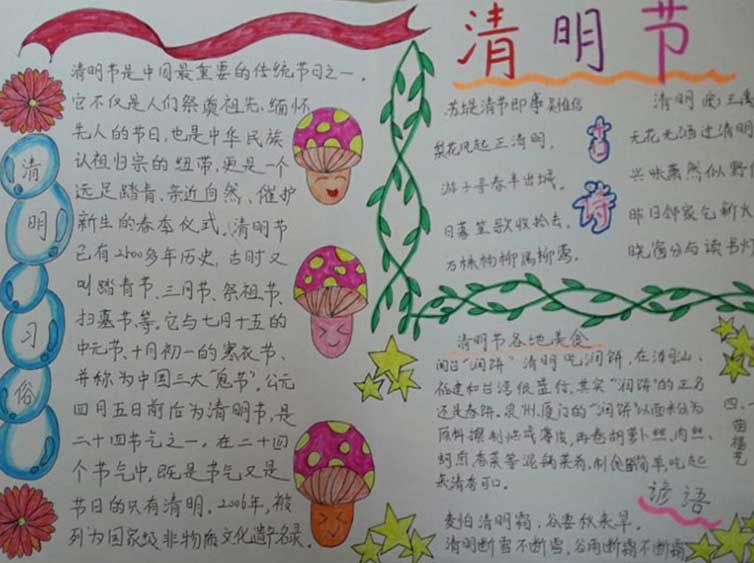 清明节
清明习俗
清明节是中国最重要的传统节日之一。
它不仅是人们祭奠祖先、缅怀
先人的节日,也是中华民族
认祖归宗的纽带,更是一个
远足踏青、亲近自然、催护
新生的春季仪式。清明节
已有2500多年历史,古时又
叫踏青节、三月节、祭祖节、
扫墓节等。它与七月十五的
中元节、十月初一的寒衣节、
并称为中国三大“鬼节”。公元
四月五日前后为清明节,是
二十四节气之一。在二十四
个节气中,既是节气又是
节日的只有清明。2006年,被
列为国家级非物质文化遗产名录。
古诗
苏堤清节即事 吴惟信
梨花风起正清明,
游子寻春半出城。
日暮笙歌收拾去,
万株杨柳属流莺。
清明 王禹
无花无酒过清明
兴味萧然似野僧
昨日邻家乞新火
晓窗分与读书灯
清明节各地美食
闽台“润饼” 清明吃润饼,在
福建和台湾很盛行,其实“润饼”的正名
还是春饼。泉州、厦门的“润饼”以面粉为
原料擦制烘成薄皮,再卷胡萝卜丝、肉丝、
蚵煎、香菜等混锅菜肴,制食简单,吃起
来清香可口。
谚语
麦怕清明霜,谷要秋来旱。
清明断雪不断雪,谷雨断霜不断霜
四、